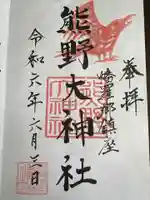 奉拝
鎮座
熊野大神社
熊野大神社
令和六年六月三日